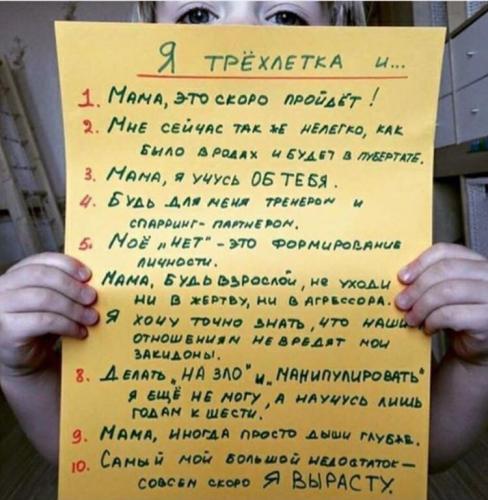 Я ТРЁХЛЕТКА и...
1. МАМА, ЭТО СКОРО ПРОЙДЁТ!
2. МНЕ СЕЙЧАС ТАК ЖЕ НЕЛЕГКО, КАК
БЫЛО В РОДАХ И БУДЕТ В ПУБЕРТАТЕ.
3. МАМА, Я УЧУСЬ ОБ ТЕБЯ.
4. БУДЬ ДЛЯ МЕНЯ ТРЕНЕРОМ И
СПАРРИНГ-ПАРТНЕРОМ.
5. МОЁ „НЕТ" - ЭТО ФОРМИРОВАНИЕ
ЛИЧНОСТИ.
МАМА, БУДЬ ВЗРОСЛОЙ, НЕ УХОДИ
НИ В ЖЕРТВУ, НИ В АГРЕССОРА.
Я ХОЧУ ТОЧНО ЗНАТЬ, ЧТО НАШИМ
ОТНОШЕНИЯМ НЕ ВРЕДЯТ МОИ
ЗАКИДОНЫ.
8. ДЕЛАТЬ „НА ЗЛО" И „МАНИПУЛИРОВАТЬ"
Я ЕЩЁ НЕ МОГУ, А НАУЧУСЬ ЛИШЬ
ГОДАМ К ШЕСТИ.
9. МАМА, ИНОГДА ПРОСТО ДЫШИ ГЛУБЖЕ.
10. САМЫЙ МОЙ БОЛЬШОЙ НЕДОСТАТОК –
СОВСЕМ СКОРО Я ВЫРАСТУ.